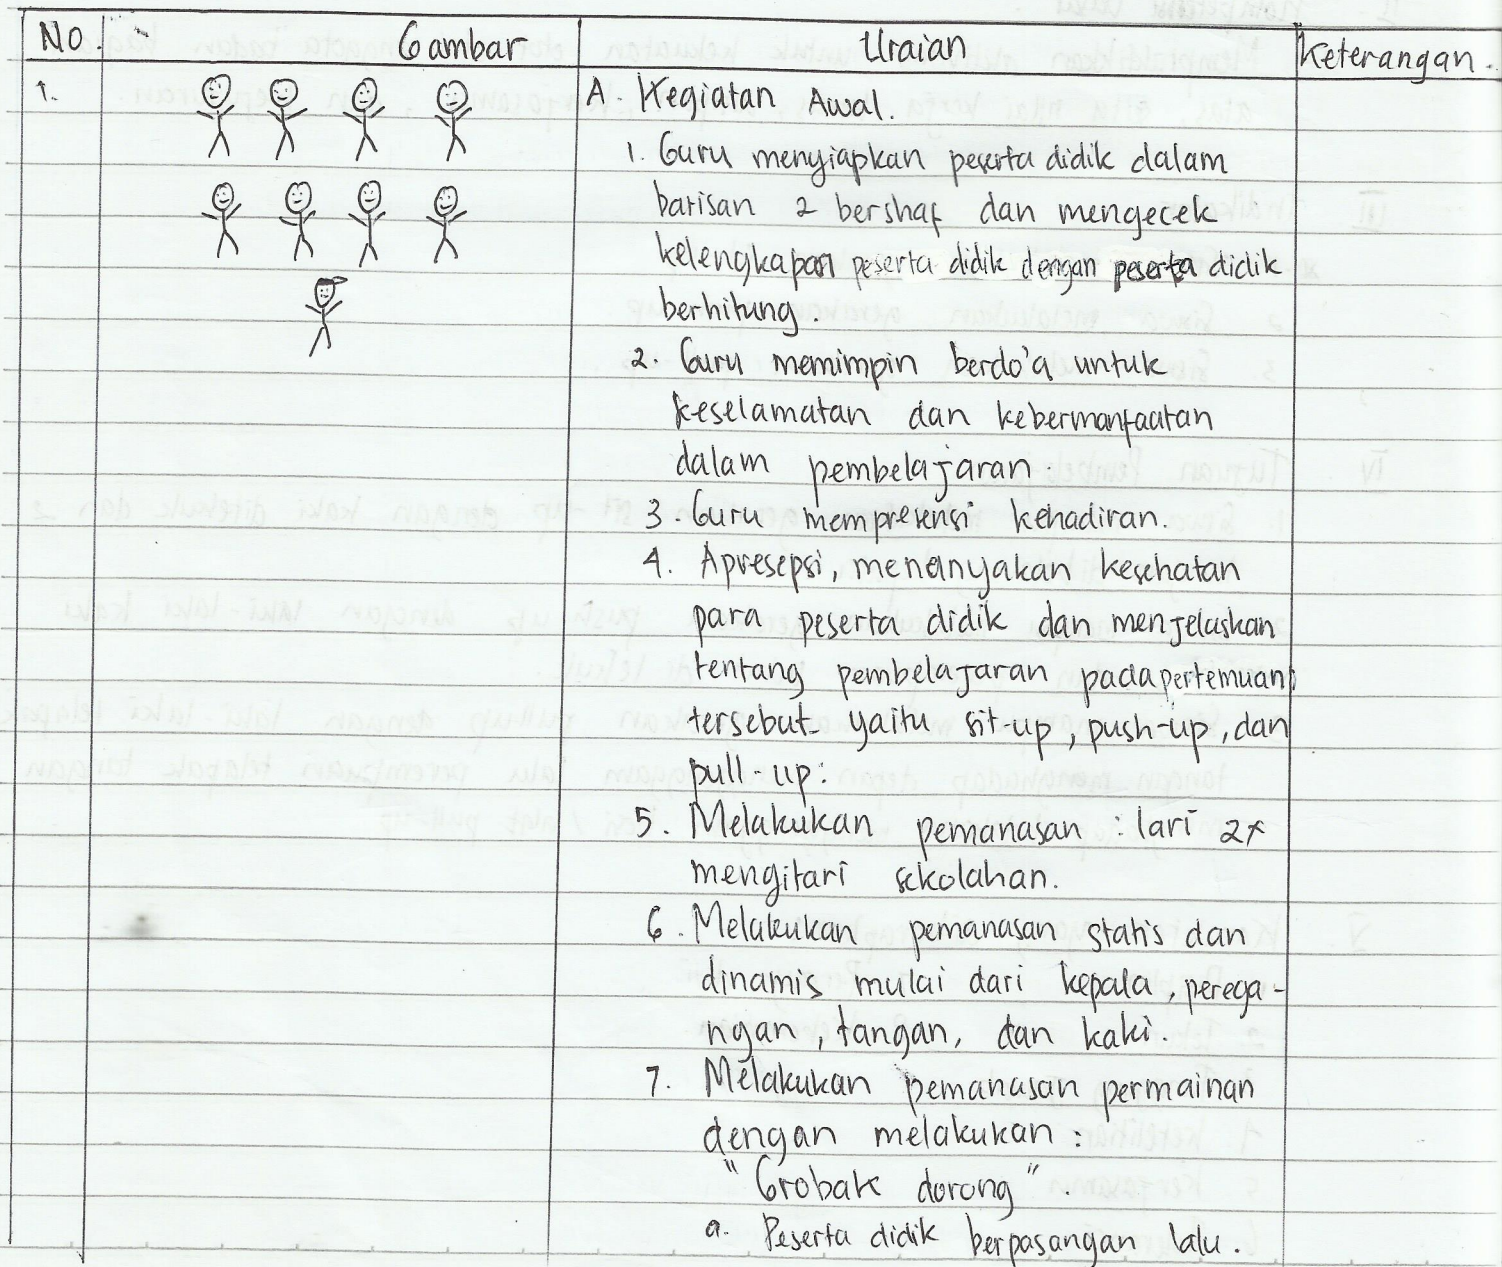 No Gambar Uraian Keterangan.
1. A. Kegiatan Awal.
1. Guru menyiapkan peserta didik dalam
barisan 2 bershaf dan mengecek
kelengkapan peserta didik dengan peserta didik
berhitung.
2. Guru memimpin berdo'a untuk
keselamatan dan kebermanfaatan
dalam pembelajaran.
3. Guru mempresensi kehadiran.
4. Apresepsi, menanyakan kesehatan
para peserta didik dan menjelaskan
tentang pembelajaran pada pertemuan
tersebut yaitu sit-up, push-up, dan
pull-up.
5. Melakukan pemanasan : lari 2x
mengitari sekolahan.
6. Melakukan pemanasan statis dan
dinamis mulai dari kepala, perega-
ngan, tangan, dan kaki.
7. Melakukan pemanasan permainan
dengan melakukan :
"Grobak dorong".
a. Peserta didik berpasangan lalu.